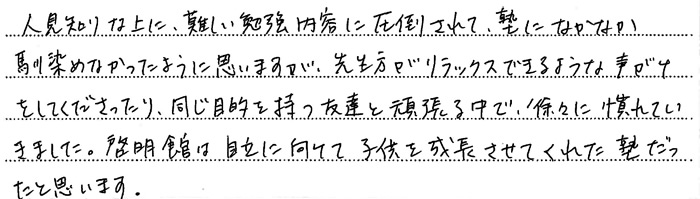 人見知りな上に、難しい勉強内容に圧倒されて、塾になかなか
馴染めなかったように思いますが、先生方がリラックスできるような声がけ
をしてくださったり、同じ目的を持つ友達と頑張る中で、徐々に慣れてい
きました。啓明館は自立に向けて子供を成長させてくれた塾だっ
たと思います。